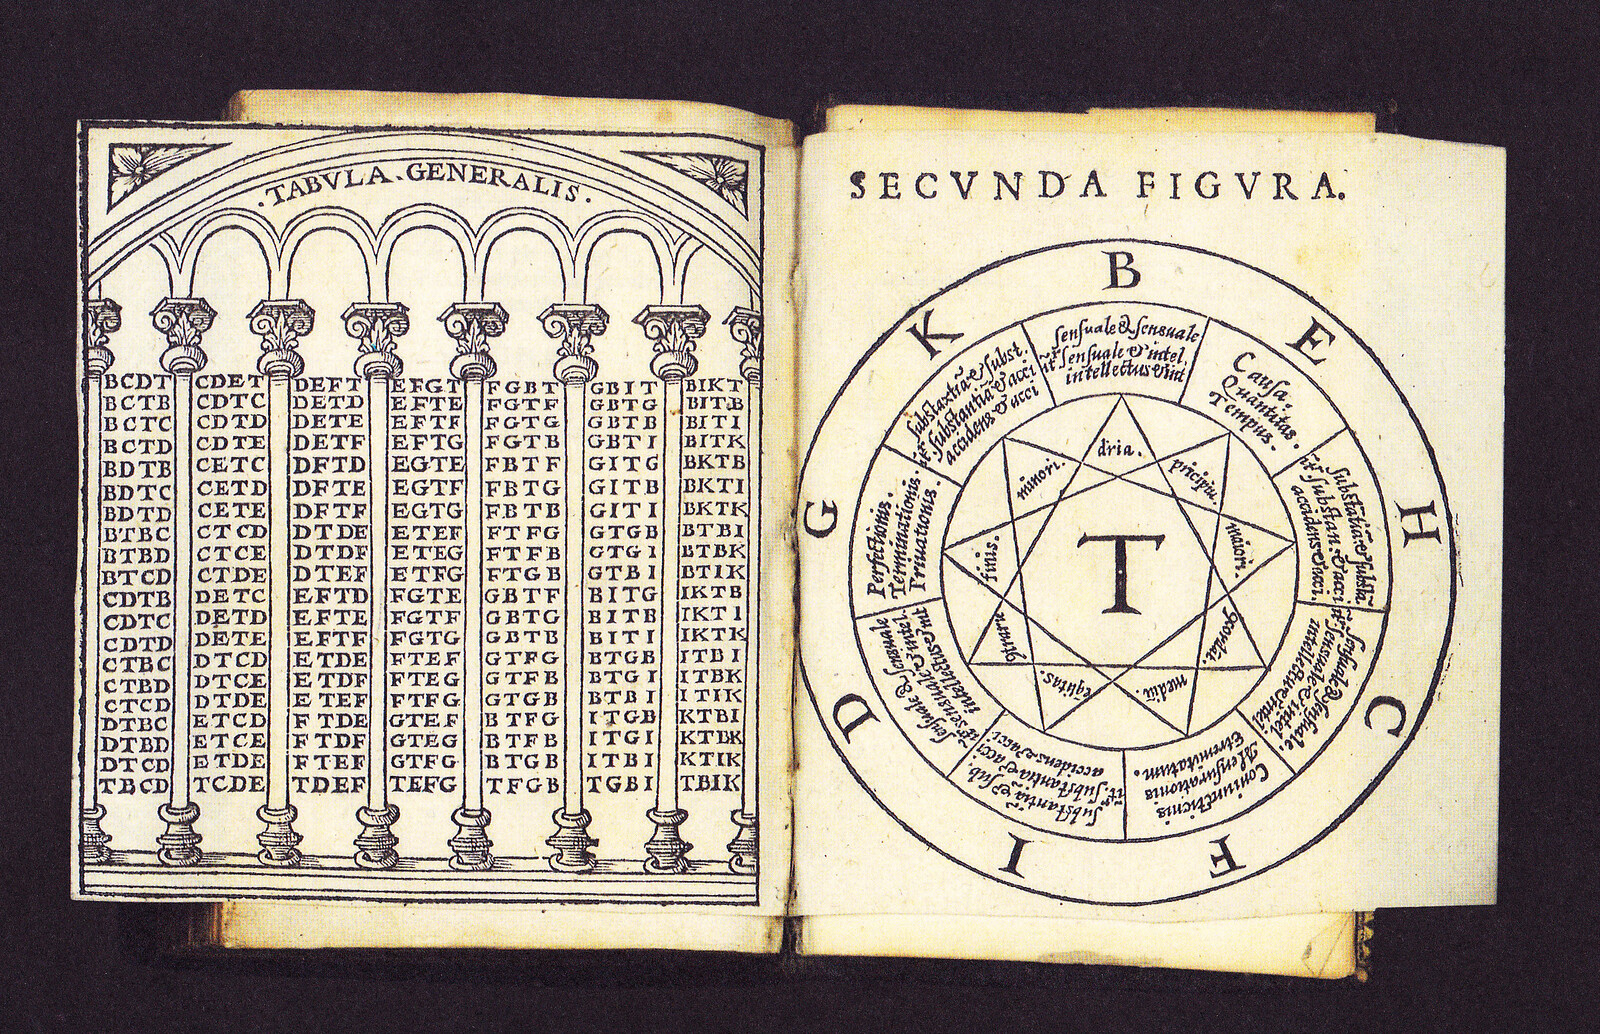 ·TABVLA·GENERALIS·
BCDT CDET DEFT EFGT FGBT GBIT BIKT
BCTB CDTC DETD EFTE FGTF GBTG BITB
BCTC CDTD DETE EFTF FGTG GBTB BITI
BCTD CDTE DETF EFTG FGTB GBTI BITK
BDTB CETC DFTD EGTE FBTF GITG BKTB
BDTC CETD DFTE EGTF FBTG GITB BKTI
BDTD CETE DFTF EGTG FBTB GITI BKTK
BTBC CTCD DTDE ETEF FTFG GTGB BTBI
BTBD CTCE DTDF ETEG FTFB GTGI BTBK
BTCD CTDE DTEF ETFG FTGB GTBI BTIK
CDTB DETC EFTD FGTE GBTF BITG IKTB
CDTC DETD EFTE FGTF GBTG BITB IKTI
CDTD DETE EFTF FGTG GBTB BITI IKTK
CTBC DTCD ETDE FTEF GTFG BTGB ITBI
CTBD DTCE ETDF FTEG GTFB BTGI ITBK
CTCD DTDE ETEF FTFG GTGB BTBI ITIK
DTBC ETCD FTDE GTEF BTFG ITGB KTBI
DTBD ETCE FTDF GTEG BTFB ITGI KTBK
DTCD ETDE FTEF GTFG BTGB ITBI KTIK
TBCD TCDE TDEF TEFG TFGB TGBI TBIK
SECVNDA FIGVRA.
B
E
H
C
F
I
D
G
K
sensuale & sensuale
sensuale & intel.
Causa.
Quantitas.
Tempus.
Substātia & substā.
Substan. & acci
accidens & acci.
sensuale & sensuale.
sensuale & intel
Coniunctionis.
Mensurationis
Extremitatum.
Substantia & sub
Substantia & acci
accidens & acci.
sensuale & sensuale
sensuale & intel
Perfectionis.
Terminationis.
Priuationis.
Substantiā & acci
accidens & acci
dria.
pricipiū.
maiori.
mediū.
eqlitas.
finis.
minori.
T